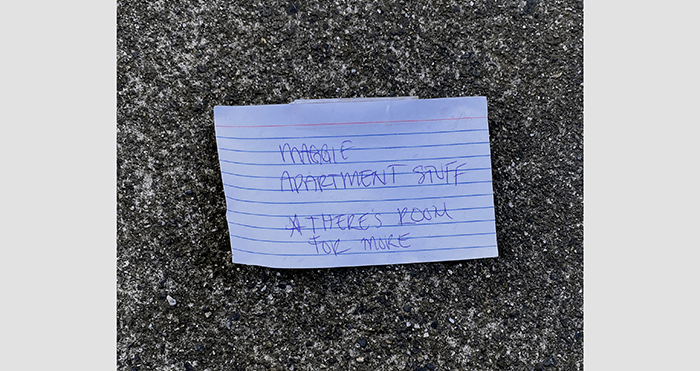 MAGGIE
APARTMENT STUFF
* THERE'S ROOM
FOR MORE